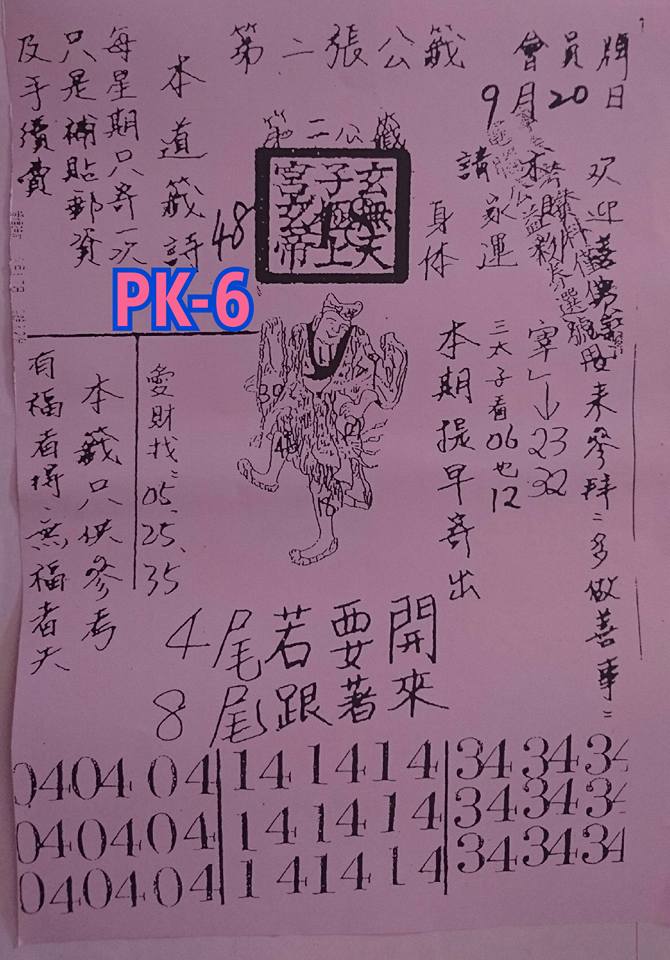 第二張公籤
會員牌
9月20日
第二公籤
請
家運
身体
欢迎
来參拜:多做善事:
宮子玄
玄極無
帝上天
18
48
本道籤詩
每星期只寄一次
只是補貼郵資
及手續費
PK-6
23
32
三太子看06也12
本期提早寄出
39
48
18
愛財找:05、25、35
本籤只供參考
有福者得、無福者失
4尾若要開
8尾跟著來
04 04 04 14 14 14 34 34 34
04 04 04 14 14 14 34 34 34
04 04 04 14 14 14 34 34 34